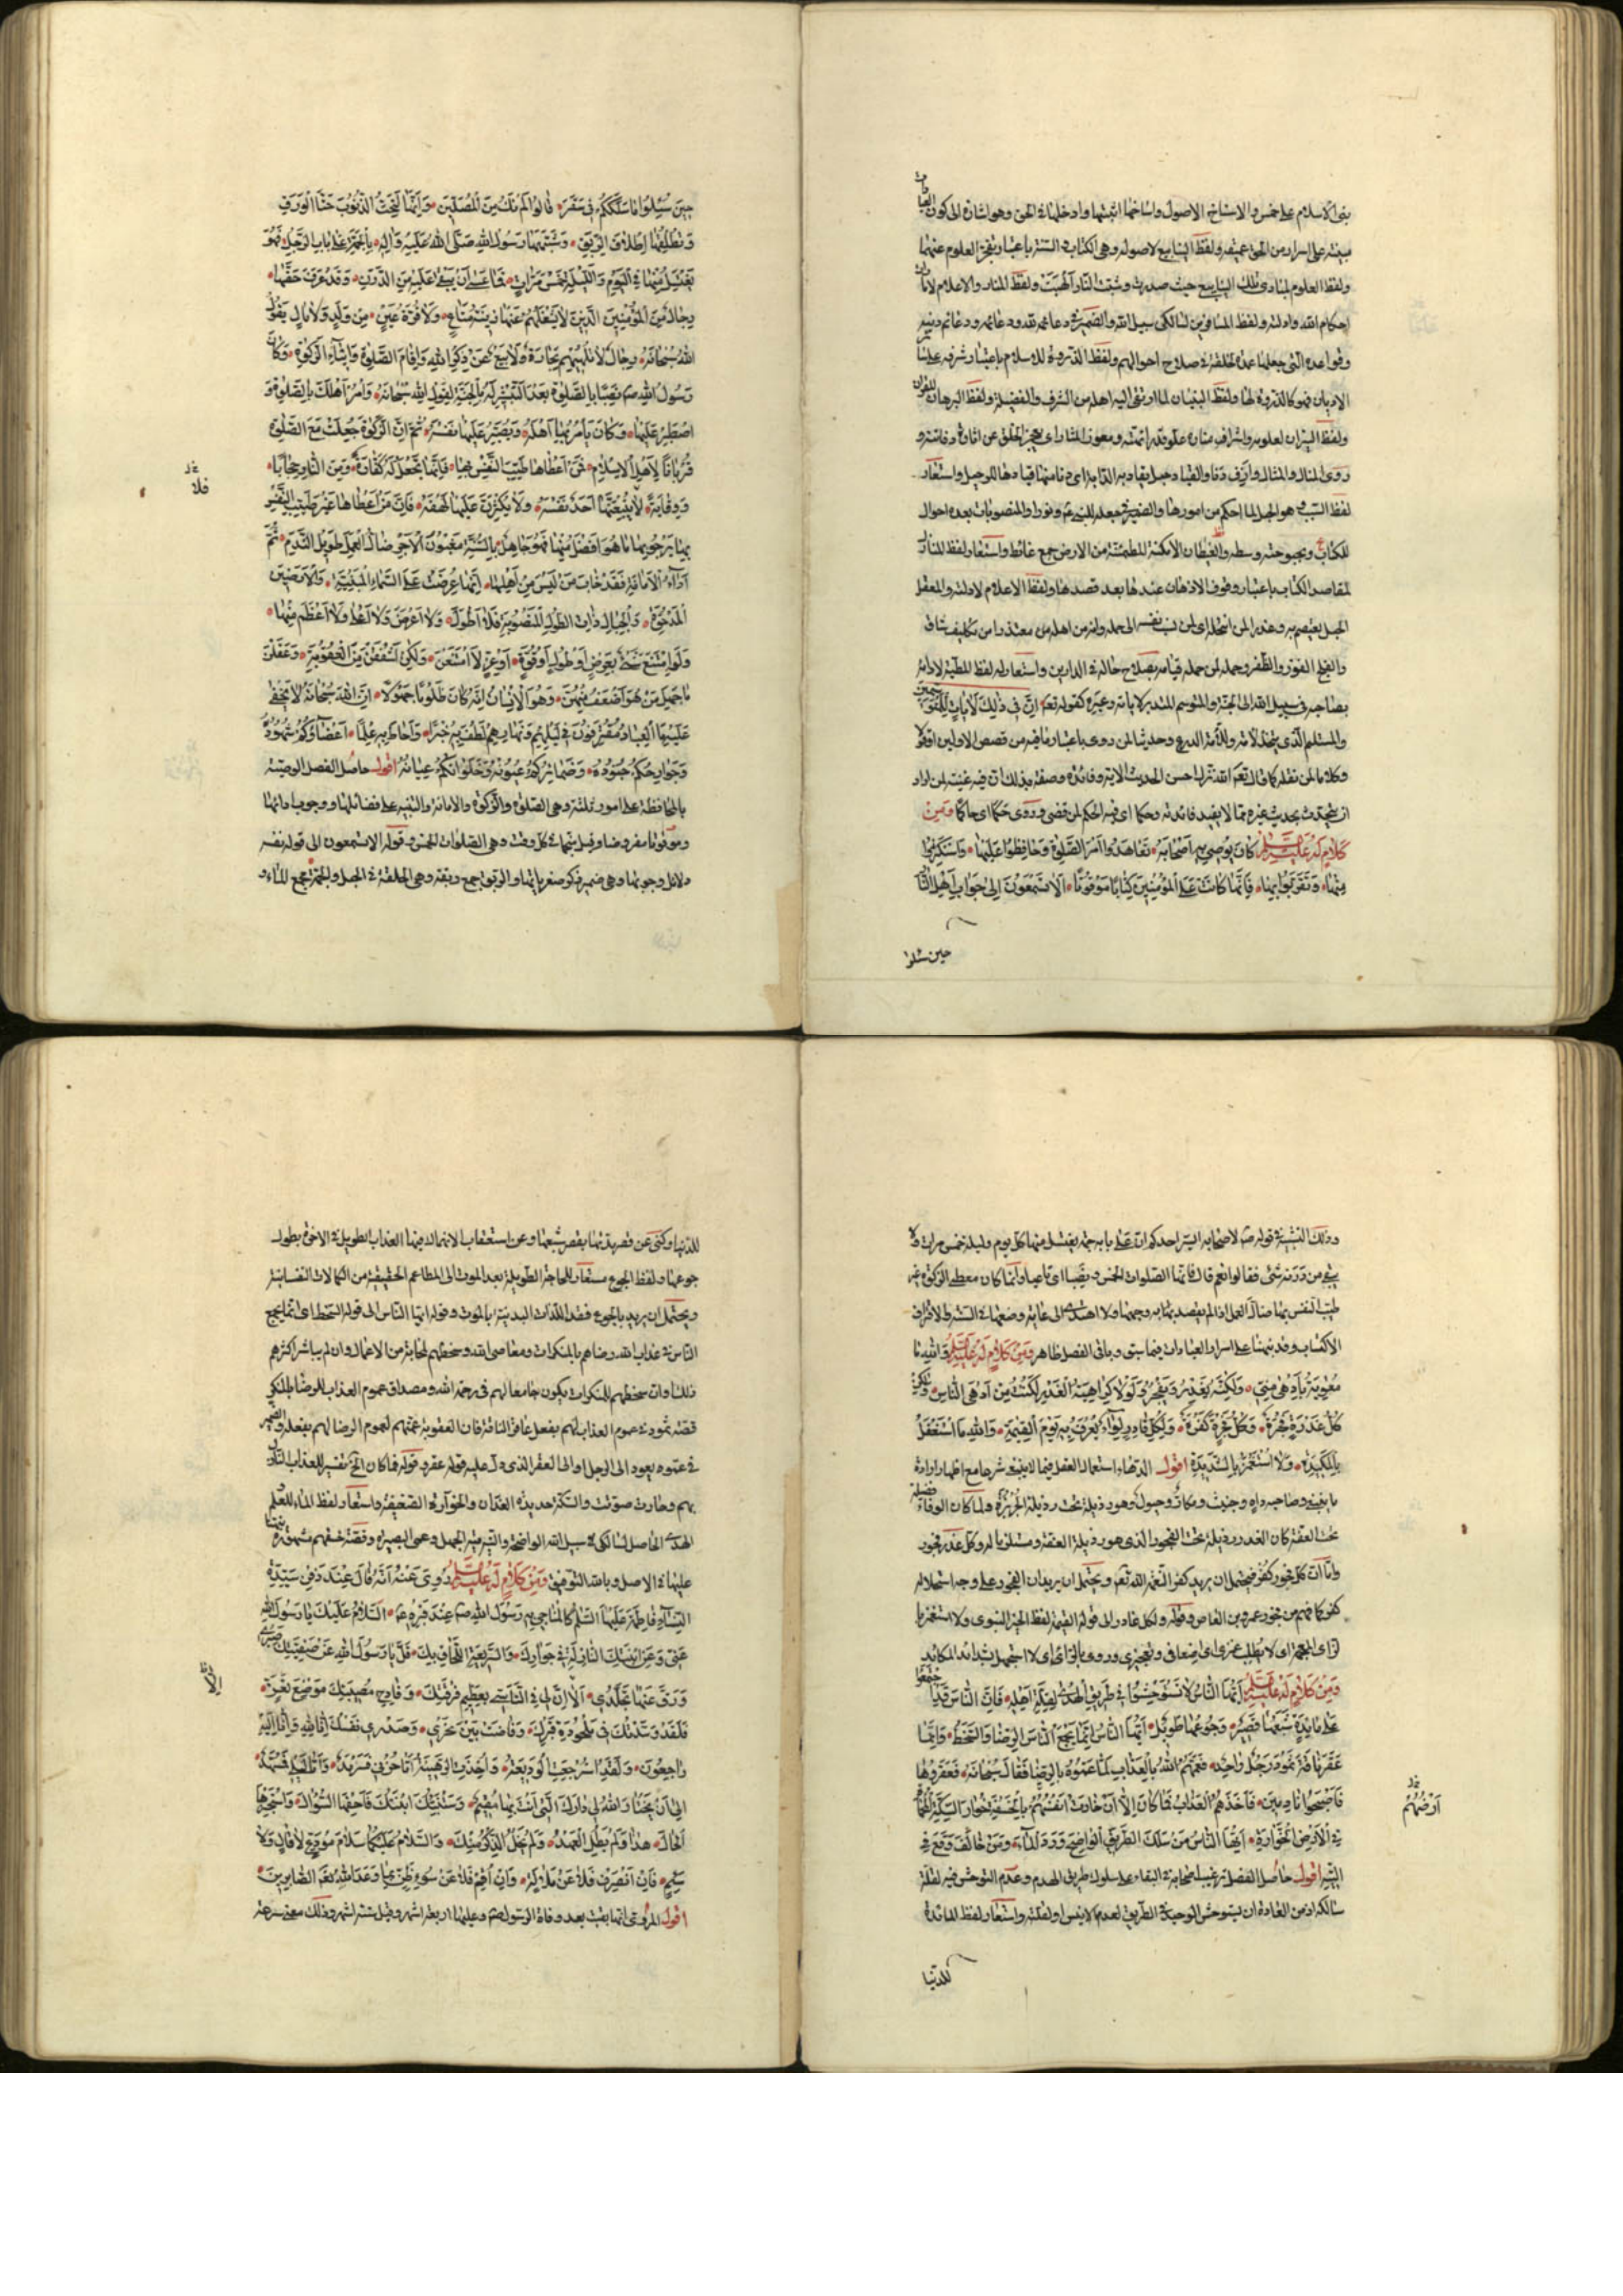 بنى الاسلام على خمس والاسناخ الاصول واساخها اثبتها وادخلها فى الحق وهو اشارة الى كون العبادات
مبنية على اسرار من الحق عميقة ولفظ الينابيع لاصوله وهى الكتاب والسنة باعتبار تفجر العلوم عنهما
ولفظ العلوم لمبادى تلك الينابيع حيث صدرت وشبت النار الهبت ولفظ المنار والاعلام
احكام الله وادلته ولفظ المسافرين لسالكى سبيل الله والضمير فى دعائمه لله ودعائمه ودعائم دينه
وقواعده التى جعلها عمدة لخلقه فى صلاح احوالهم ولفظ الذروة للاسلام باعتبار شرفه على
الاديان فهو كالذروة لها ولفظ البنيان لما ارتقى اليه اهله من الشرف والفضيلة ولفظ البرهان للقران
ولفظ النيران لعلومه واشراف مناره علو قدر ائمته ومعوذ المثار اى يعجز الخلق عن اثارة دفائنه و
روى المنال والمثال وازف دنا والقياد حبل يقاد به الدابة اى دنا منها قيادها للرحيل واستعار
لفظ السبب وهو الحبل لما احكم من امورها والضمير فى جعله للنبى ع ونورا والمنصوبات بعده احوال
للكتاب وبحبوحته وسطه والغيطان الامكنة المطمئنة من الارض جمع غائط واستعار لفظ المنازل
لمقاصد الكتاب باعتبار وقوف الاذهان عندها بعد قصدها ولفظ الاعلام لادلته والمعقل
الجبل يعتصم به وعذر المن انتحله اى لمن نسب نفسه الى حمله وانه من اهله من معتذرا من تكليف شاق
والفلج الفوز والظفر وحمله لمن حمله قيامه بصلاح حاله فى الدارين واستعار له لفظ المطية لادائه
بصاحبه فى سبيل الله الى الجنة والمتوسم المتدبر لاياته وعبره كقوله تعالى ان فى ذلك لايات للمتوسمين
والمستلئم الذى يتخذ لأمة واللأمة الدرع وحديثا لمن روى باعتبار ما فيه من قصص الاولين اقولا
وكلاما لمن نقله كما قال تعالى الله نزل احسن الحديث الاية وفائدة وصفه بذلك ان فيه غنية لمن اراد
ان يتحدث بحديث غيره مما لا يفيد فائدته وحكما اى فيه الحكم لمن قضى وروى حكما اى حاكما ومن
كلام له عليه السلام كان يوصى به اصحابه تعاهدوا امر الصلوة وحافظوا عليها واستكثروا
منها وتقربوا بها فانها كانت على المؤمنين كتابا موقوتا الا تسمعون الى جواب اهل النار
حين سئلوا
حين سئلوا ما سلككم فى سقر قالوا لم نك من المصلين وانها لتحت الذنوب حت الورق
وتطلقها اطلاق الربق وشبهها رسول الله صلى الله عليه واله بالحمة على باب الرجل فهو
يغتسل منها فى اليوم والليلة خمس مرات فما عسى ان يبقى عليه من الدرن وقد عرف حقها
رجال من المؤمنين الذين لا يشغلهم عنها زينة متاع ولا قرة عين من ولد ولا مال يقول
الله سبحانه رجال لا تلهيهم تجارة ولا بيع عن ذكر الله واقام الصلوة وايتاء الزكوة وكان
رسول الله ص نصبا بالصلوة بعد التبشير له بالجنة لقول الله سبحانه وامر اهلك بالصلوة و
اصطبر عليها وكان يأمر بها اهله ويصبر عليها نفسه ثم ان الزكوة جعلت مع الصلوة
قربانا لاهل الاسلام فمن اعطاها طيب النفس بها فانها تجعل له كفارة ومن النار حجابا
ووقاية فلا يتبعنها احد نفسه ولا يكثرن عليها لهفه فان من اعطاها غير طيب النفس
بها يرجو بها ما هو افضل منها فهو جاهل بالسنة مغبون الاجر ضال العمل طويل الندم ثم
اداء الامانة فقد خاب من ليس من اهلها انها عرضت على السماء المبنية والارضين
المدحوة والجبال ذات الطول المنصوبة فلا اطول ولا اعرض ولا اعلى ولا اعظم منها
ولو امتنع شىء بعرض او طول او قوة او عز لامتنعن ولكن اشفقن من العقوبة وعقلن
ما جهل من هو اضعف منهن وهو الانسان انه كان ظلوما جهولا ان الله سبحانه لا يخفى
عليه ما العباد مقترفون فى ليلهم ونهارهم لطف به خبرا واحاط به علما اعضاؤكم شهوده
وجوارحكم جنوده وضمائركم عيونه وخلواتكم عيانه اقول حاصل الفصل الوصية
بالمحافظة على امور ثلثة وهى الصلوة والزكوة والامانة والتنبيه على فضائلها ووجوبها
وموقوتا مفروضا وقيل منجما فى كل وقت وهى الصلوات الخمس وقوله الا تسمعون الى قوله نفسه
دلائل وجوبها وهى ضمير والربق جمع ربقة وهى الحلقة فى الحبل والحمة مجمع الماء و
فلا
وذلك التشبيه فى قوله ص لاصحابه ايسر احدكم ان على بابه حمة يغتسل منها كل يوم وليلة خمس مرات ولا
يبقى من درنه شىء فقالوا نعم قال فانها الصلوات الخمس ونصبا اى تاعبا وانما كان معطى الزكوة غير
طيب النفس بها ضال العمل اذا لم يقصد بها به وجهها ولا اهتدى الى غايته وضعها فى السنة والاقتراف
الاكتساب وقد نبهنا على اسرار العبادات فيما سبق وباقى الفصل ظاهر ومن كلام له عليه السلام والله ما
معوية بأدهى منى ولكنه يغدر ويفجر ولولا كراهية الغدر لكنت من ادهى الناس ولكن
كل غدرة فجرة وكل فجرة كفرة ولكل غادر لواء يعرف به يوم القيمة والله ما استغفل
بالمكيدة ولا استغمز بالشديدة اقول الدهاء استعمال العقل فيما لا ينبغى شرعا مع اظهار ارادة
ما ينبغى وصاحبه داه وخبيث ومكار وحيول وهو رذيلة تحت رذيلة الجربزة ولما كان الوفاء فضيلة
تحت العفة كان الغدر رذيلة تحت الفجور الذى هو رذيلة العفة ومستلزما له وكل غدر فجور
واما ان كل فجور كفر فيحتمل ان يريد كفر النعم لله تعالى ويحتمل ان يريد ان الفجور على وجه استحلاله
كفر كما فهم من فجور عمرو بن العاص وقوله ولكل غادر الى قوله القيمة لفظ الخبر النبوى ولا استغمز بالزاى
المعجمة اى لا يطلب غمزى اى اضعافى وتعجيزى وروى بالراء اى لا اجهل بشدائد المكائد
ومن كلام له عليه السلام ايها الناس لا تستوحشوا فى طريق الهدى لقلة اهله فان الناس قد اجتمعوا
على مائدة شبعها قصير وجوعها طويل ايها الناس انما يجمع الناس الرضا والسخط وانما
عقر ناقة ثمود رجل واحد فعمهم الله بالعذاب لما عموه بالرضا فقال سبحانه فعقروها
فاصبحوا نادمين فاخذهم العذاب فما كان الا ان خارت بالخسفة خوار السكة المحماة
فى الارض الخوارة ايها الناس من سلك الطريق الواضح ورد الماء ومن خالف وقع فى
التيه اقول حاصل الفصل ترغيب اصحابه فى البقاء على سلوك طريق الهدى وعدم التوحش فيه لقلة
سالكه اذ من العادة ان يستوحش الوحيد فى الطريق لعدم الانيس او لقلته واستعار لفظ المائدة
ارضهم
للدنيا
للدنيا وكنى عن قصر مدتها بقصر شبعها وعن استعقاب الانهماك فيها العذاب الطويل فى الاخرة بطول
جوعها ولفظ الجوع مستعار للحاجة الطويلة بعد الموت الى المطاعم الحقيقية من الكمالات النفسانية
ويحتمل ان يريد بالجوع فقد اللذات البدنية بالموت وقوله ايها الناس الى قوله السخط اى انما يجمع
الناس فى عذاب الله رضاهم بالمنكرات ومعاصى الله وسخطهم لمحابه من الاعمال وان لم يباشر اكثرهم
ذلك وان سخطهم للمنكرات يكون جامعا لهم فى رحمة الله ومصداق عموم العذاب للرضا بالمنكر
قصة ثمود فى عموم العذاب لهم بفعل عاقر الناقة فان العقوبة عمتهم لعموم الرضا لهم بفعله والضمير
فى عموه يعود الى الرجل او الى العقر الذى دل عليه قوله عقر وقوله فما كان الخ تفسير للعذاب النازل
بهم وخارت صوتت والسكة حديدة الفدان والخوارة الضعيفة واستعار لفظ الماء للعلم و
الهدى الحاصل لسالكى سبيل الله الواضحة والتيه تيه الجهل وعمى البصيرة وقصة خسفهم مشهورة نبهنا
عليها فى الاصل وبالله التوفيق ومن كلام له عليه السلام روى عنه انه قال عند دفن سيدة
النساء فاطمة عليها السلم كالمناجى به رسول الله ص عند قبره ع السلام عليك يا رسول الله
عنى وعن ابنتك النازلة فى جوارك والسريعة اللحاق بك قل يا رسول الله عن صفيتك صبرى
ورق عنها تجلدى الا ان لى فى التأسى بعظيم فرقتك وفادح مصيبتك موضع تعز
فلقد وسدتك فى ملحودة قبرك وفاضت بين نحرى وصدرى نفسك انا لله وانا اليه
راجعون ولقد استرجعت الوديعة واخذت الرهينة اما حزنى فسرمد واما ليلى فمسهد
الى ان يختار الله لى دارك التى انت بها مقيم وستنبئك ابنتك فاحفها السؤال واستخبرها
الحال هذا ولم يطل العهد ولم يخل الذكر منك والسلام عليكما سلام مودع لا قال ولا
سئم فان انصرف فلا عن ملالة وان اقم فلا عن سوء ظن بما وعد الله الصابرين
اقول المروى انها بقيت بعد وفاة الرسول صلى الله عليه وعليها اربعة اشهر وقيل ستة اشهر وذلك معنى سرعة
الا